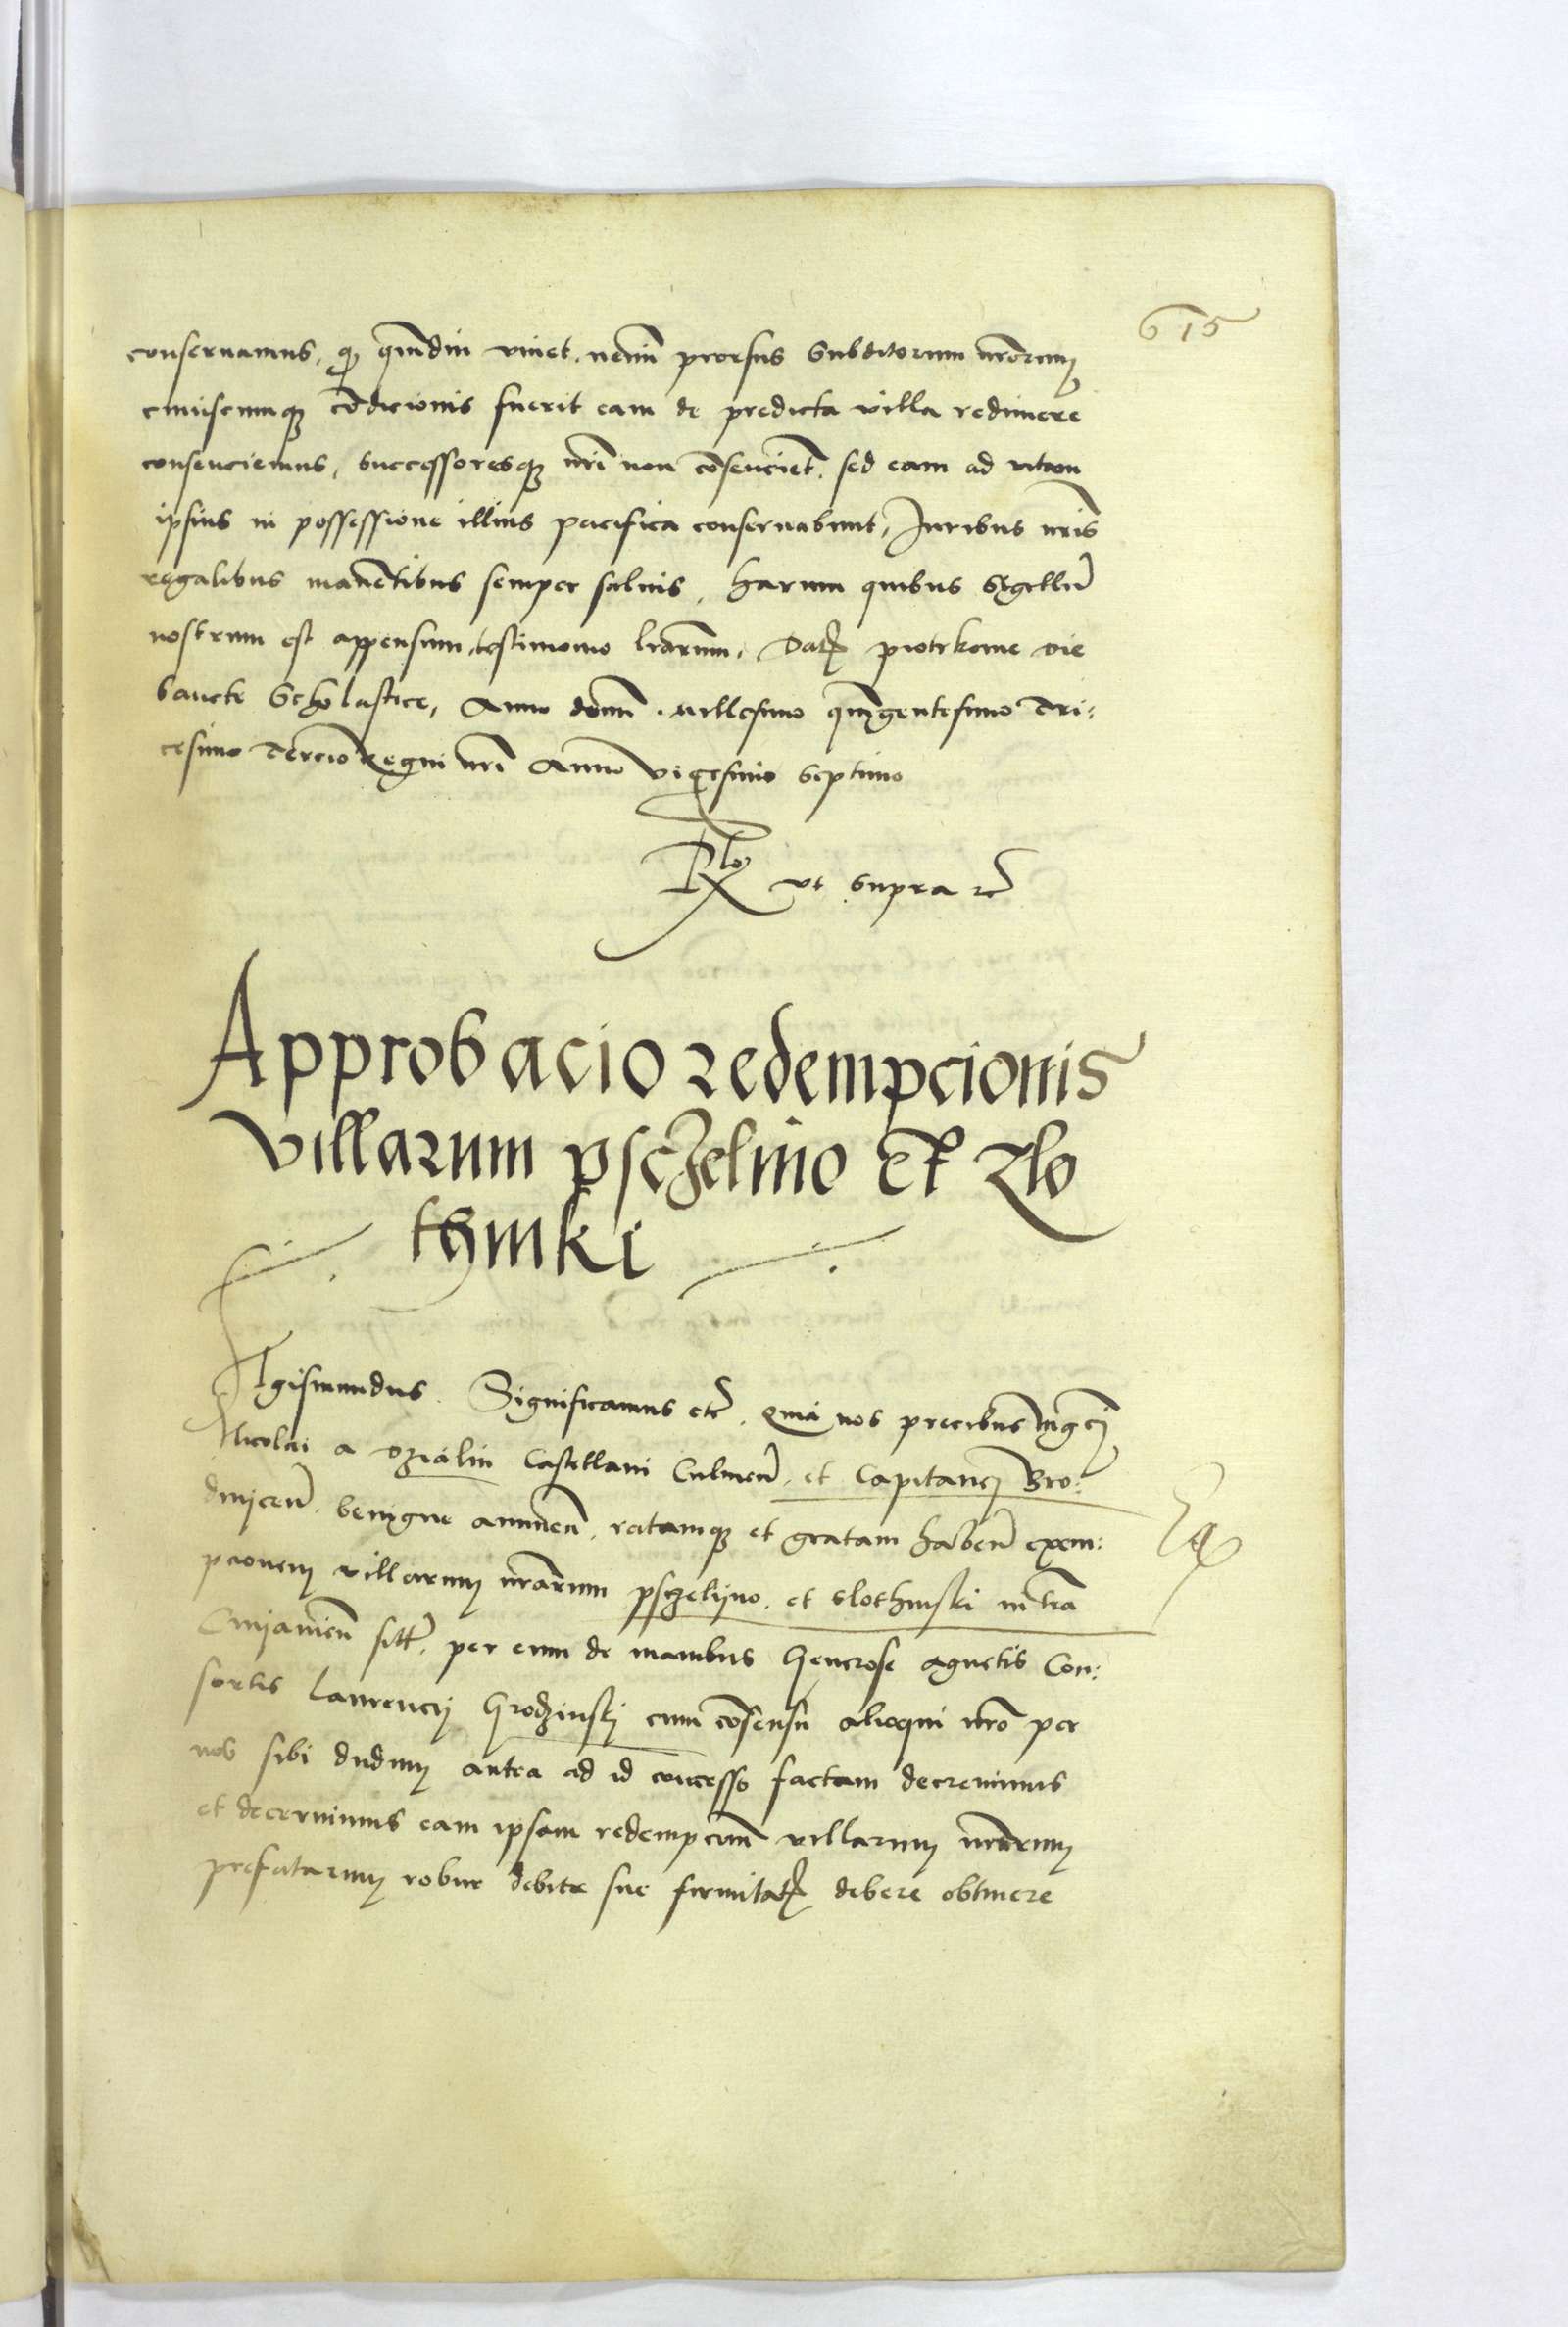 615
conservamus, qꝫ quādiu vivet. nemini prorsus Subditorum nrōrum
cuiuscumqꝫ cōdicionis fuerit eam de predicta villa redimere
consenciemus, Successoresqꝫ nrī non cōsencient. sed eam ad vitam
ipsius in possessione illius pacifica conservabunt, Iuribus nrīs
regalibus manētibus semper salvis, harum quibus Sigillū
nostrum est appensum, testimonio lrārum, Datꝭ piotrkovie die
Sancte Scholastice, Anno domī. millesimo quīgentesimo Tri:
cesimo Tercio Regni nrī Anno vigesimo Septimo
Rlo ut Supra etc
Approbacio redempcionis
villarum psczelino Et Zlo
thynki
Sigismundus. Significamus etc. Quia nos precibus Mgcī
Nicolai a Dzialin Castellani Culmeñ. et Capitanei Bro:
dnyceñ. benigne annueñ. ratamqꝫ et gratam habeñ exem:
pcionem villarum nrārum psczelijno. et Slothynski in trā
Cuijavieñ sitt. per eum de manibus Generose Agnetis Con:
sortis Laurencij Grodzinskij cum cōsensu alioqui nrō per
nos sibi dudum antea ad id concesso factam decrevimus
et decernimus eam ipsam redempcionē villarum nrārum
prefatarum robur debite sue firmitatꝭ debere obtinere